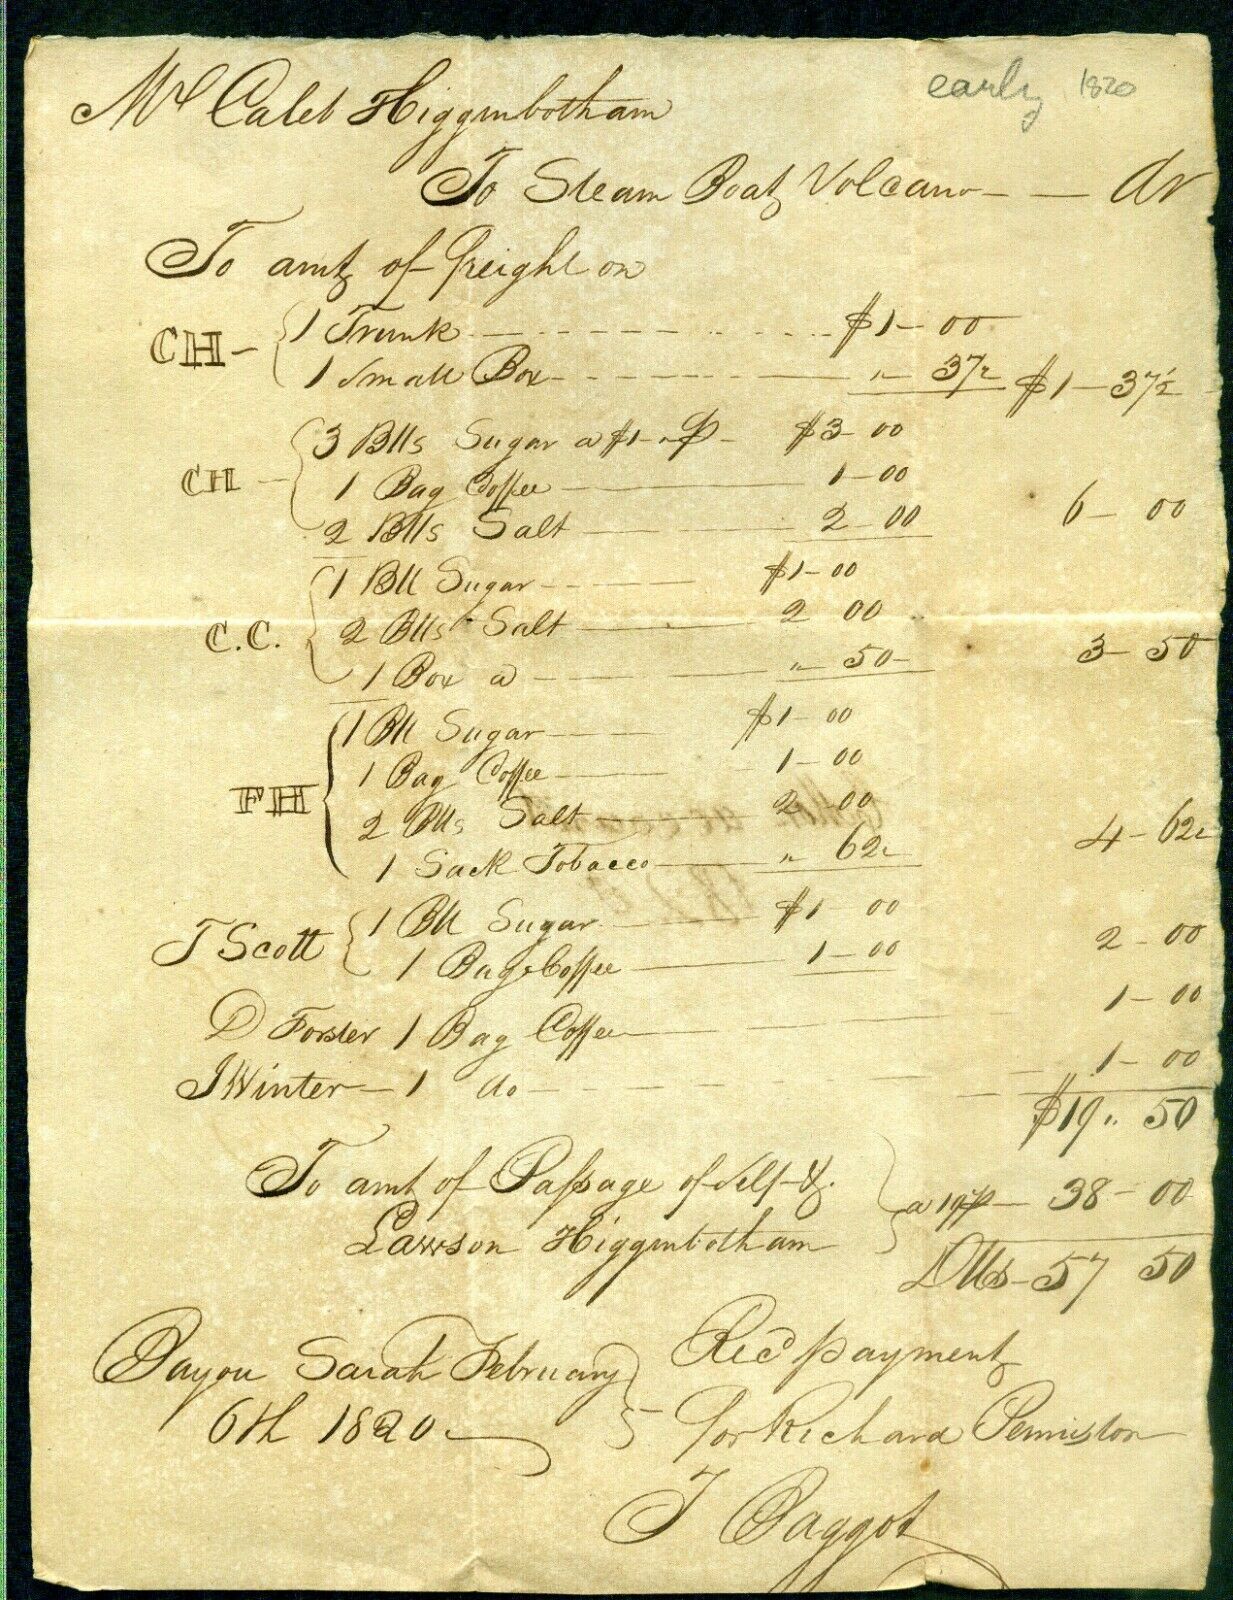 early 1820
Mr Caleb Higginbotham
To Steam Boat Volcano — — Dr
To amt of freight on
CH – 1 Trunk $1–00
1 Small Box " 37½ $1–37½
CH – 3 Blls Sugar a $1 p $3–00
1 Bag Coffee 1–00
2 Blls Salt 2–00 6–00
C.C. 1 Bll Sugar $1–00
2 Blls Salt 2 00
1 Box a " 50 3–50
FH 1 Bll Sugar $1–00
1 Bag Coffee 1–00
2 Blls Salt 2–00
1 Sack Tobacco " 62½ 4–62½
T Scott 1 Bll Sugar $1–00
1 Bag Coffee 1–00 2–00
D Forster 1 Bag Coffee 1–00
J Winter – 1 do " 1–00
$19 " 50
To amt of Passage of self &
Lawson Higginbotham a 19 p – 38–00
Dlls – 57 50
Bayou Sarah February
6th 1820
Recd payment
for Richard Pemiston
T Baggot